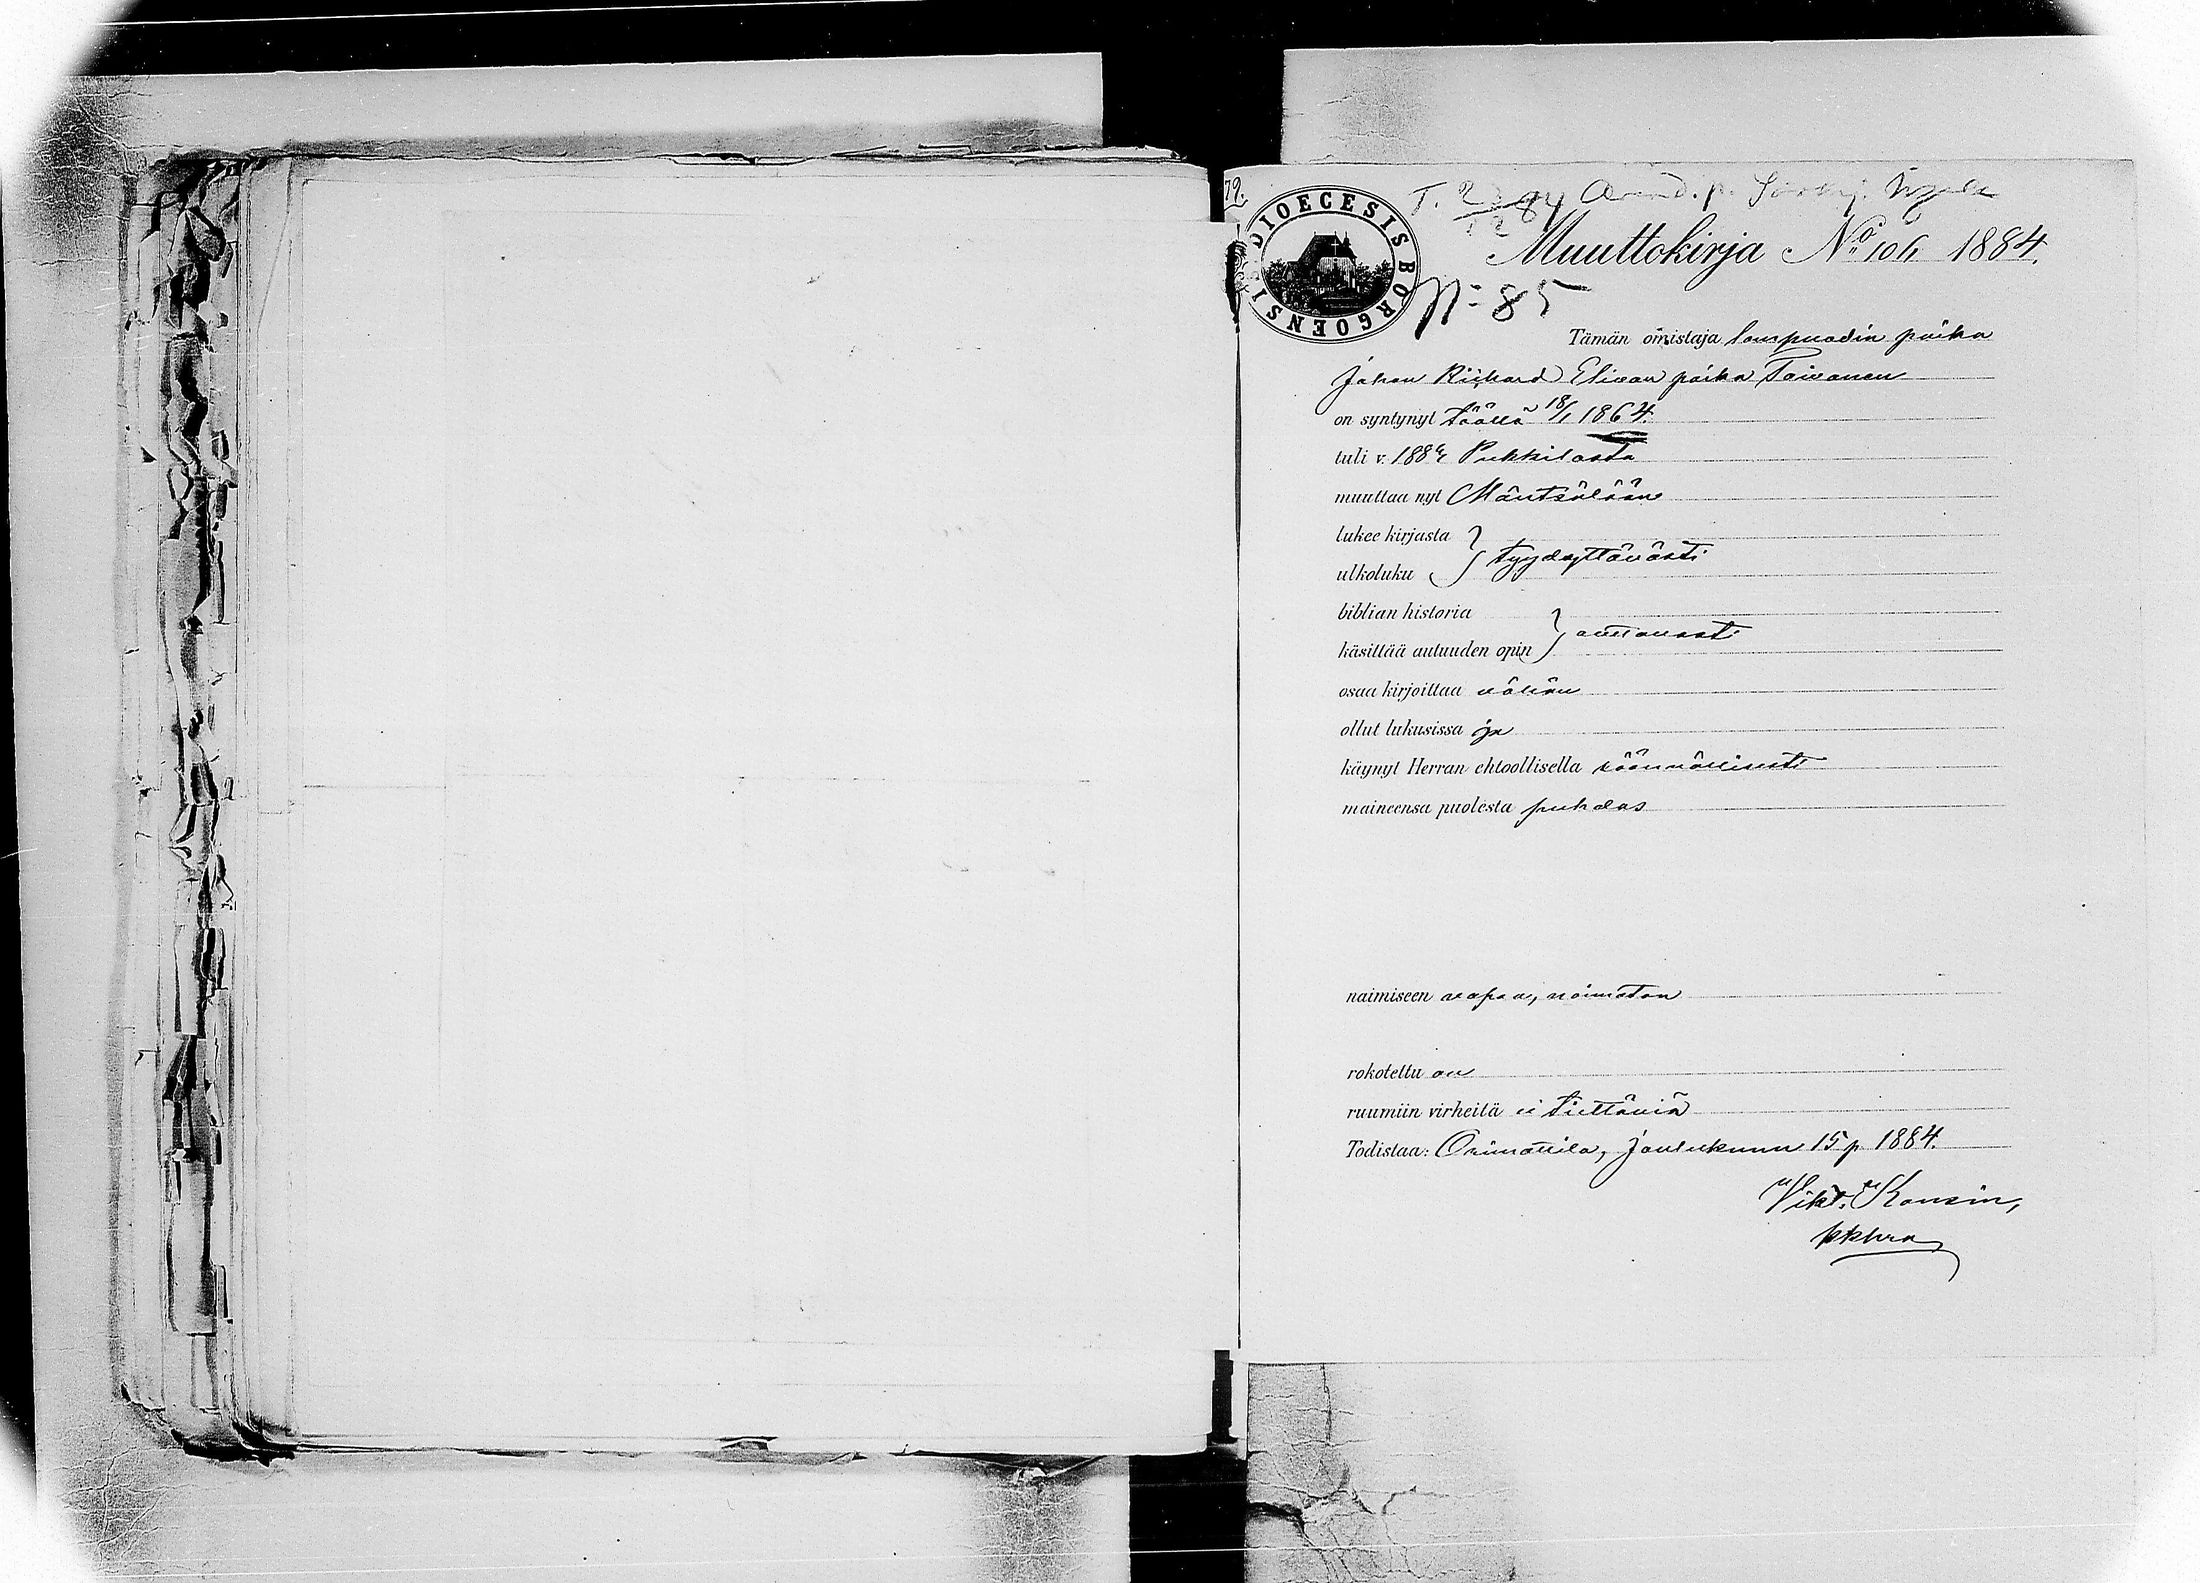 79.
DIOECESIS BORGOENSIS
T. 23/12 84 Arend. p.
Muuttokirja No 106 1884.
No 85
Tämän omistaja lampuodin poika
Johan Rickard Elivan poika Toivonen
on syntynyt täällä 18/1 1864.
tuli v. 1884 Pukkilasta
muuttaa nyt Mäntsälään
lukee kirjasta
ulkoluku } tyydyttävästi
biblian historia
käsittää autuuden opin } auttavasti
osaa kirjoittaa vähän
ollut lukusissa jo
käynyt Herran ehtoollisella säännöllisesti
maineensa puolesta puhdas
naimiseen vapaa, naimaton
rokotettu on
ruumiin virheitä ei tiettäviä
Todistaa: Orimattila, Joulukuun 15 p. 1884.
Vikt. Konsin,
kkhra